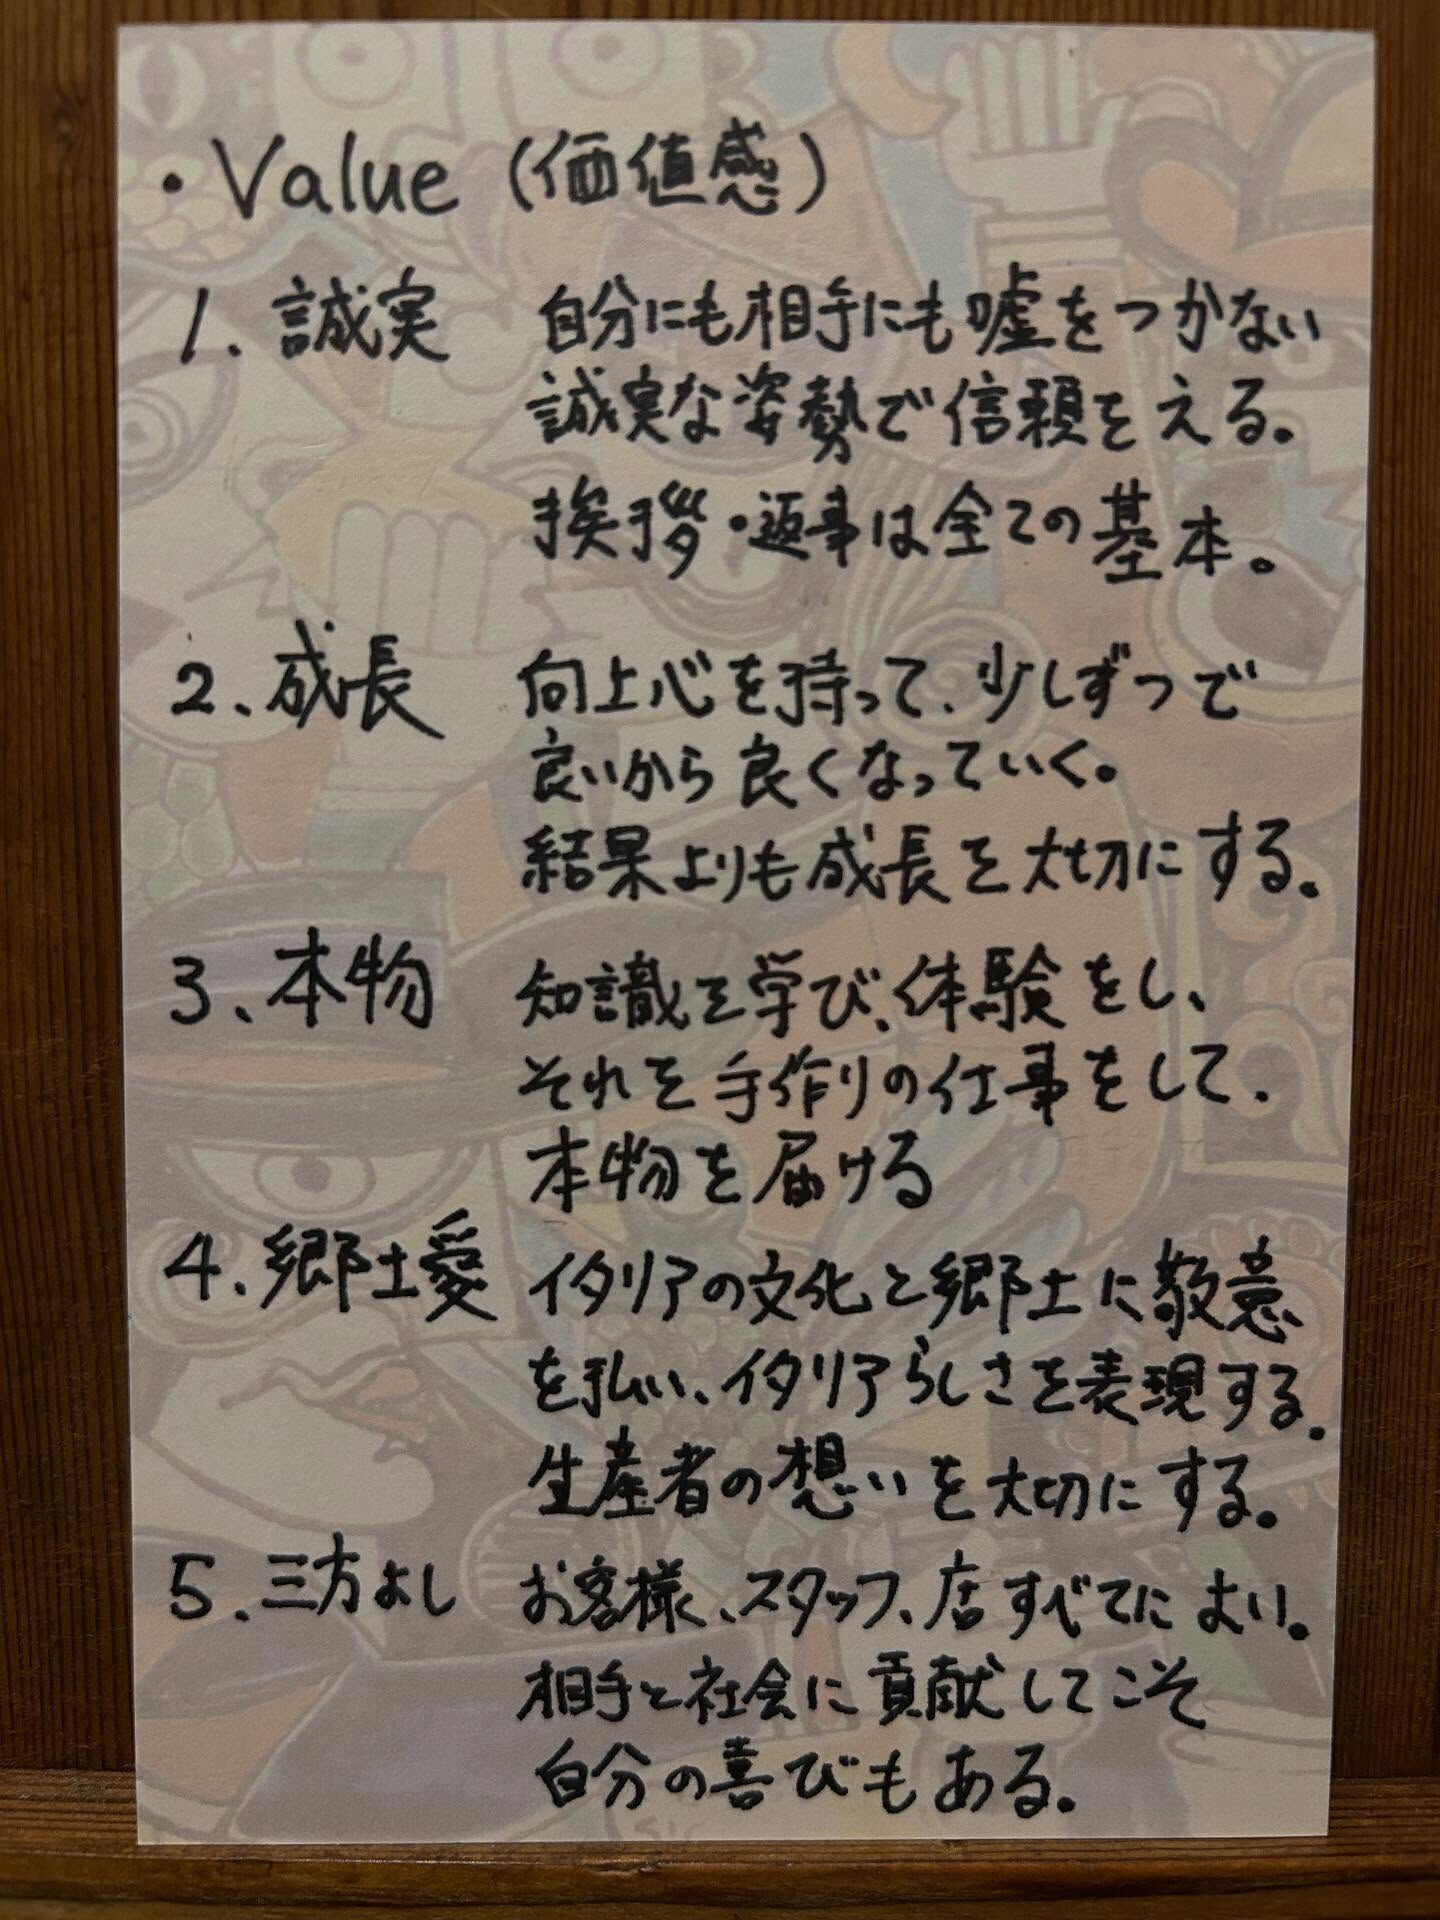 ・Value (価値感)
1、誠実 自分にも相手にも嘘をつかない
誠実な姿勢で信頼をえる。
挨拶・返事は全ての基本。
2、成長 向上心を持って、少しずつで
良いから良くなっていく。
結果よりも成長を大切にする。
3、本物 知識を学び、体験をし、
それを手作りの仕事をして、
本物を届ける
4、郷土愛 イタリアの文化と郷土に敬意
を払い、イタリアらしさを表現する。
生産者の想いを大切にする。
5、三方よし お客様、スタッフ、店すべてによい。
相手と社会に貢献してこそ
自分の喜びもある。